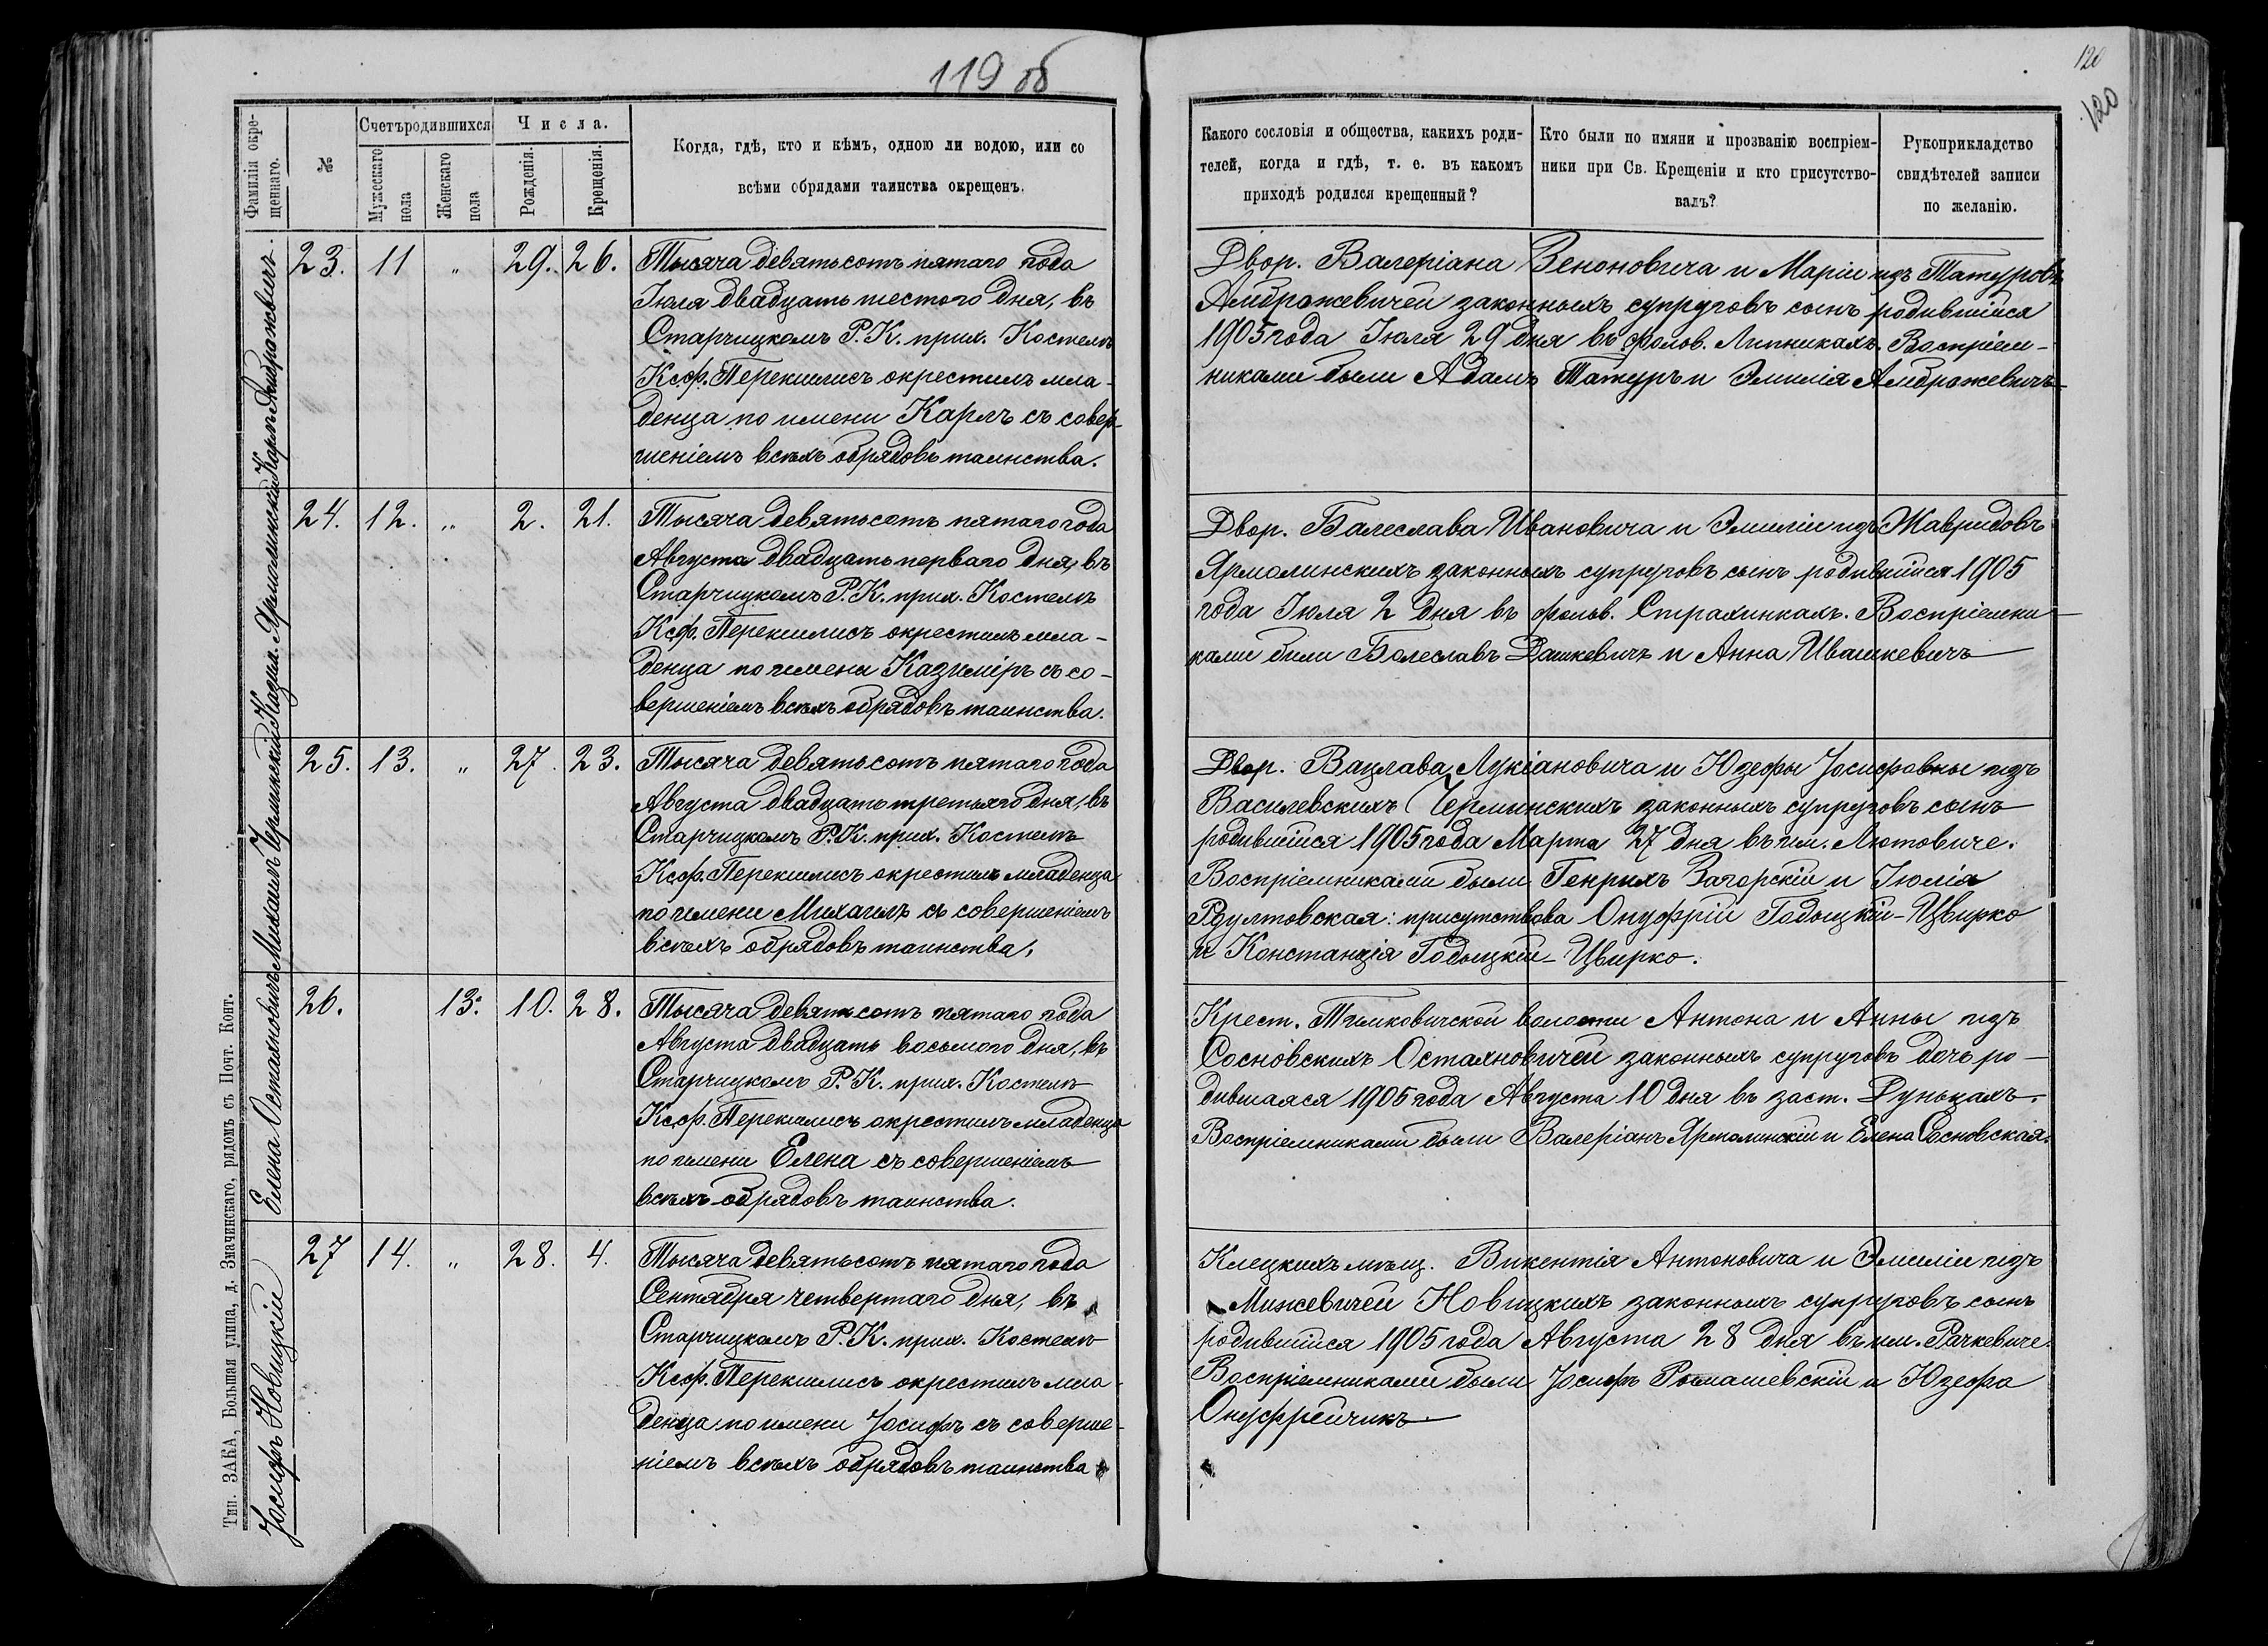 119 об
120
120
Фамилія окре-
щеннаго.
№
Счетъ родившихся
Мужескаго
пола
Женскаго
пола
Числа.
Рожденія.
Крещенія.
Когда, гдѣ, кто и кѣмъ, одною ли водою, или со
всѣми обрядами таинства окрещенъ.
Какого сословія и общества, какихъ роди-
телей, когда и гдѣ, т. е. въ какомъ
приходѣ родился крещенный?
Кто были по имяни и прозванію воспріем-
ники при Св. Крещеніи и кто присутство-
валъ?
Рукоприкладство
свидѣтелей записи
по желанію.
Карлъ Амброжевичъ.
23. 11 „ 29. 26.
Тысяча девятьсотъ пятаго года
Іюля двадцать шестого дня, въ
Старчицкомъ Р.К. прих. Костелѣ
Ксф. Перекшлисъ окрестилъ мла-
денца по имени Карлъ съ совер-
шеніемъ всѣхъ обрядовъ таинства.
Двор. Валеріана Зеноновича и Маріи изъ Татуровъ
Амброжевичей законныхъ супруговъ сынъ родившійся
1905 года Іюля 29 дня въ фолв. Липникахъ. Воспріем-
никами были Адамъ Татуръ и Эмилія Амброжевичъ
Казим. Ярмолинскій
24. 12. „ 2. 21.
Тысяча девятьсотъ пятаго года
Августа двадцать перваго дня, въ
Старчицкомъ Р.К. прих. Костелѣ
Ксф. Перекшлисъ окрестилъ мла-
денца по имени Казимiръ съ со-
вершеніемъ всѣхъ обрядовъ таинства.
Двор. Балеслава Ивановича и Эмиліи изъ Жавридовъ
Ярмолинскихъ законныхъ супруговъ сынъ родившійся 1905
года Іюля 2 дня въ фольв. Страхинкахъ. Воспріемни
ками были Болеславъ Дашкевичъ и Анна Ивашкевичъ
Михаилъ Черминскій
25. 13. „ 27. 23.
Тысяча девятьсотъ пятаго года
Августа двадцать третьяго дня, въ
Старчицкомъ Р.К. прих. Костелѣ
Ксф. Перекшлисъ окрестилъ младенца
по имени Михаилъ съ совершеніемъ
всѣхъ обрядовъ таинства.
Двор. Вацлава Лукіановича и Юзефы Іосифовны изъ
Василевскихъ Черминскихъ законныхъ супруговъ сынъ
родившійся 1905 года Марта 27 дня въ им. Лютовиче.
Воспріемниками были Генрихъ Загорскій и Юлія
Рдултовская: присутствова Онуфрій Годыцкій-Цвирко
и Констанція Годыцкій-Цвирко.
Елена Остахновичъ
26. 13. 10. 28.
Тысяча девятьсотъ пятаго года
Августа двадцать восьмого дня, въ
Старчицкомъ Р.К. прих. Костелѣ
Ксф. Перекшлисъ окрестилъ младенца
по имени Елена съ совершеніемъ
всѣхъ обрядовъ таинства.
Крест. Тимковичской волости Антона и Анны изъ
Сосновскихъ Остахновичей законныхъ супруговъ дочь ро-
дившаяся 1905 года Августа 10 дня въ заст. Рунькахъ.
Воспріемниками были Валеріанъ Ярмолинскій и Елена Сосновская.
Іосифъ Новицкій
27 14. „ 28. 4.
Тысяча девятьсотъ пятаго года
Сентября четвертаго дня, въ
Старчицкомъ Р.К. прих. Костелѣ
Ксф. Перекшлисъ окрестилъ мла-
денца по имени Іосифъ съ соверше-
ніемъ всѣхъ обрядовъ таинства
Клецкихъ мѣщ. Викентія Антоновича и Эмиліи изъ
Минкевичей Новицкихъ законныхъ супруговъ сынъ
родившійся 1905 года Августа 28 дня въ им. Рачкевиче.
Воспріемниками были Іосифъ Ромашевскій и Юзефа
Онуфрейчикъ
Тип. ЗАКА, Большая улица, д. Змачинскаго, рядомъ съ Почт. Конт.